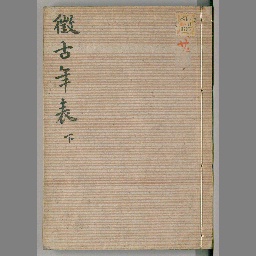 徵古年表
下